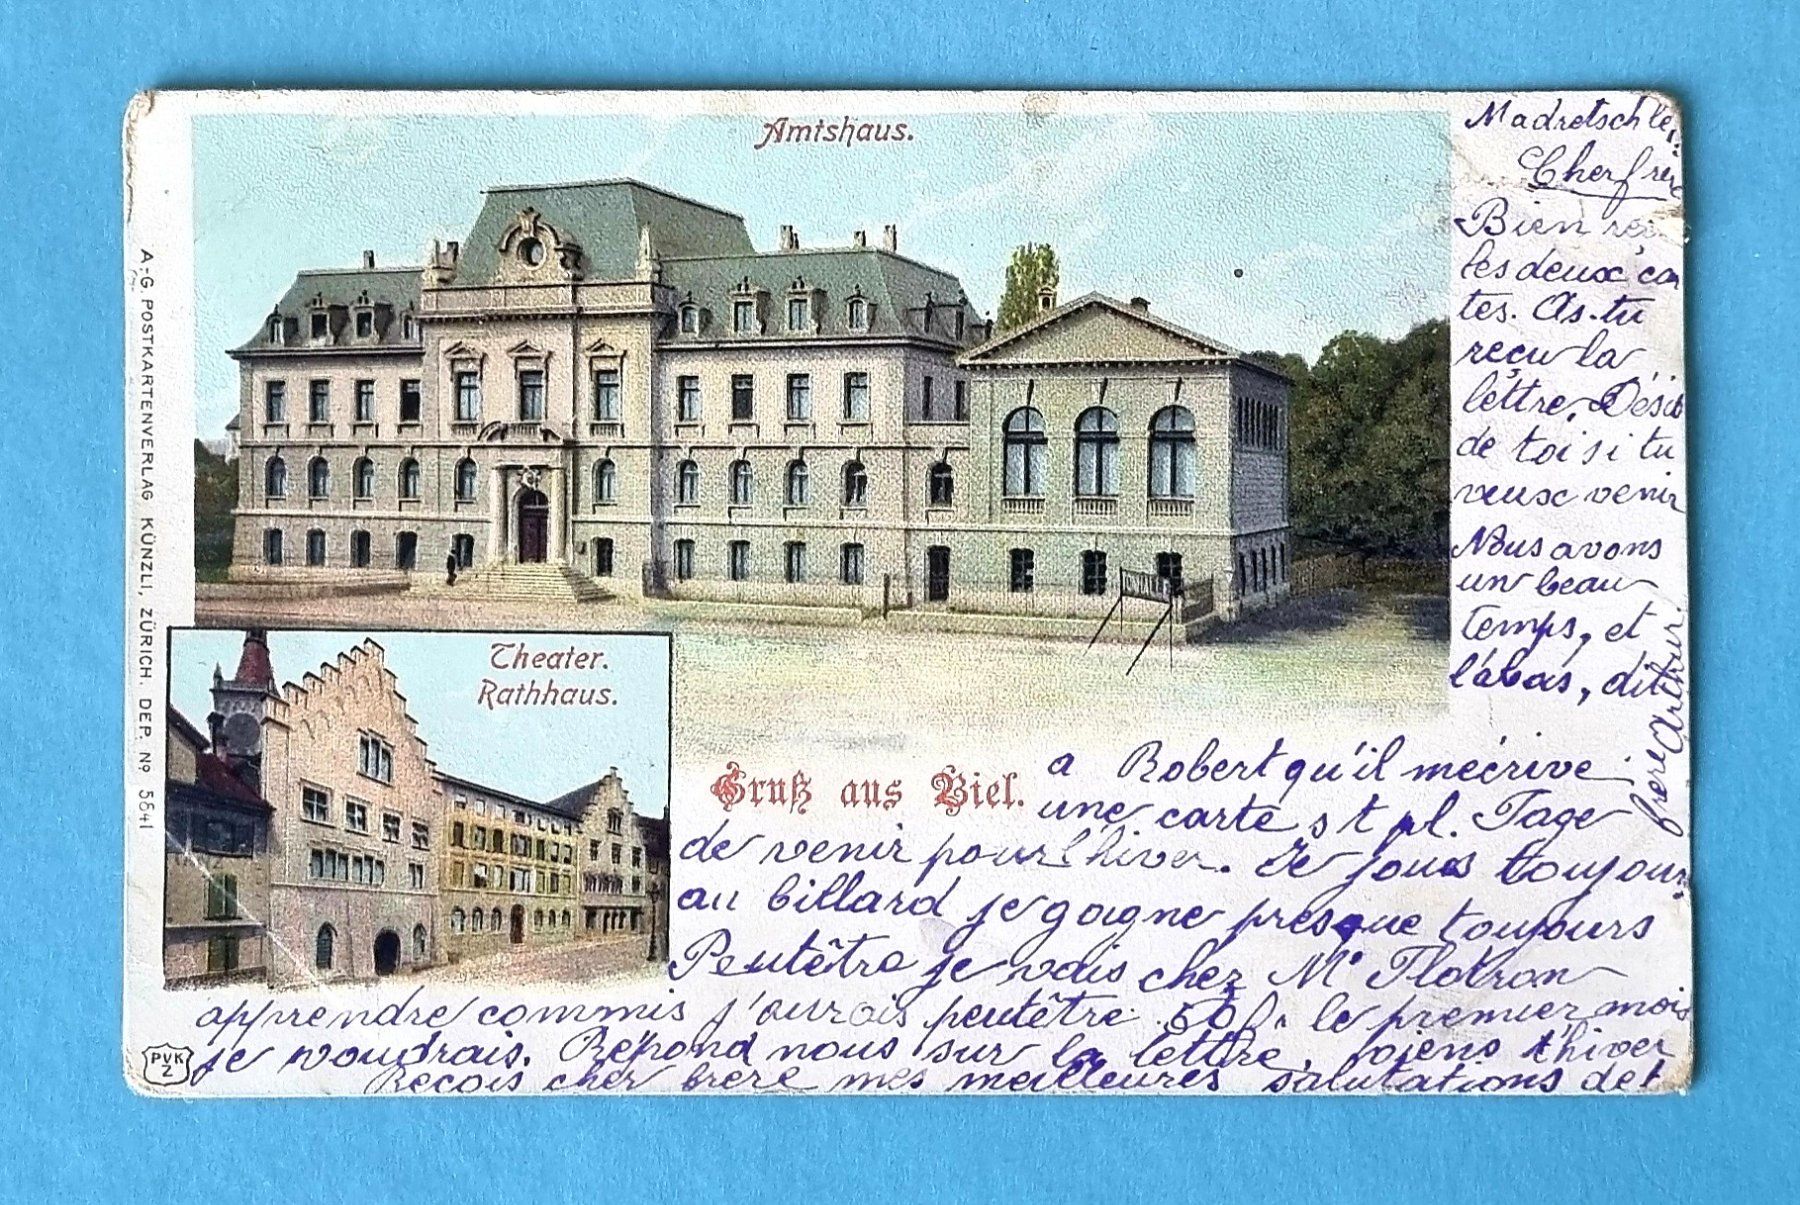 Amtshaus.
Theater.
Rathhaus.
Gruß aus Biel.
A.-G. POSTKARTENVERLAG KÜNZLI, ZÜRICH. DEP. Nº 5641
PVK
Z
Madretsch le
Cher frère
Bien reçu
les deux car
tes. As-tu
reçu la
lettre. Décid
de toi si tu
veux venir
Nous avons
un beau
temps, et
l'abas, dit
a Robert qu'il mécrive
une carte s t pl. Tage
de venir pour l'hiver. Je joues toujours
au billard je gagne presque toujours
Peutêtre je vais chez Mr Flotron
apprendre commis j'aurais peutêtre 50 f. le premier mois
je voudrais. Répond nous sur la lettre. viens l'hiver
Reçois cher frère mes meilleures salutations de t
frere Arthur.